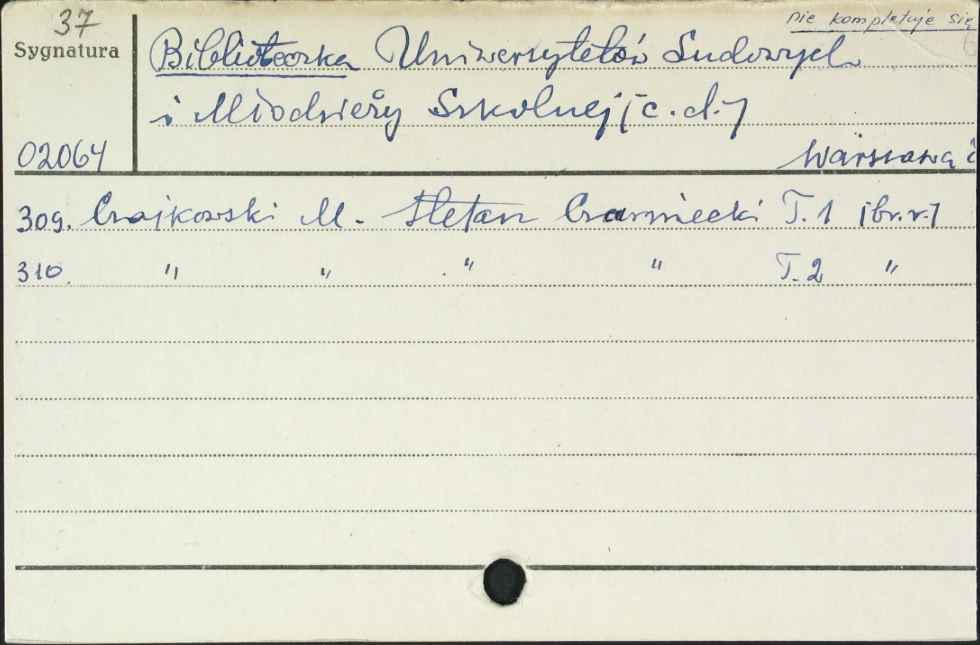 37
nie kompletuje się
Sygnatura
Biblioteczka Uniwersytetów Ludowych
i Młodzieży Szkolnej [c.d.]
02064
Warszawa
309. Czajkowski M. Stefan Czarniecki T.1 [br.r.]
310. " " " " T.2 "